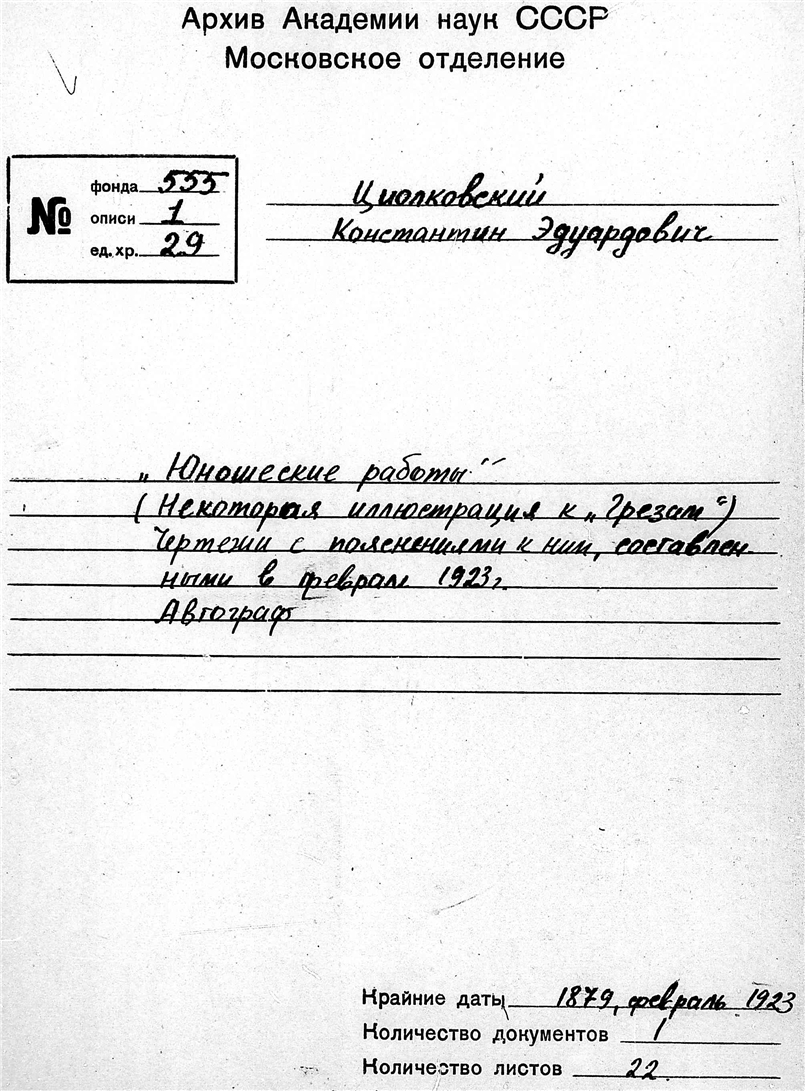 Архив Академии наук СССР
Московское отделение
№
фонда 555
описи 1
ед. хр. 29
Циолковский
Константин Эдуардович
„Юношеские работы"
(Некоторая иллюстрация к „Грезам")
Чертежи с пояснениями к ним, составлен-
ными в феврале 1923г.
Автограф
Крайние даты 1879, февраль 1923
Количество документов 1
Количество листов 22